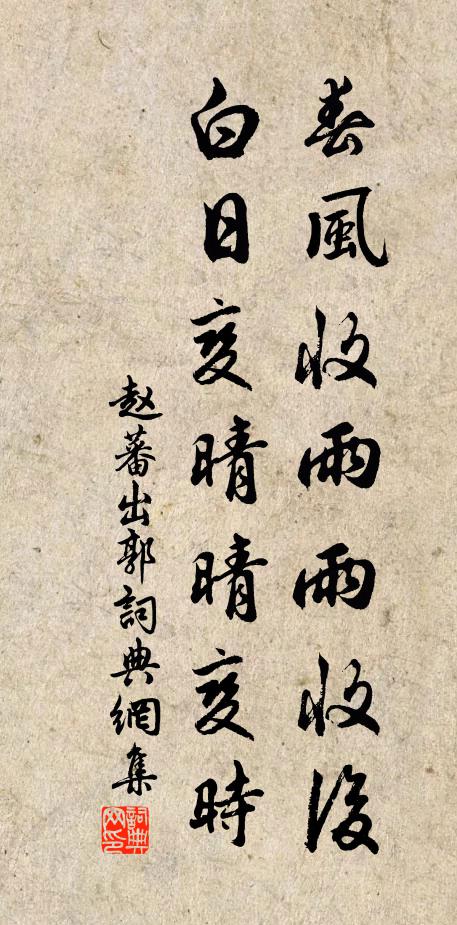 春風收雨雨收後
白日变晴晴变時
赵蕃出郭詞典網集
詞典
网印